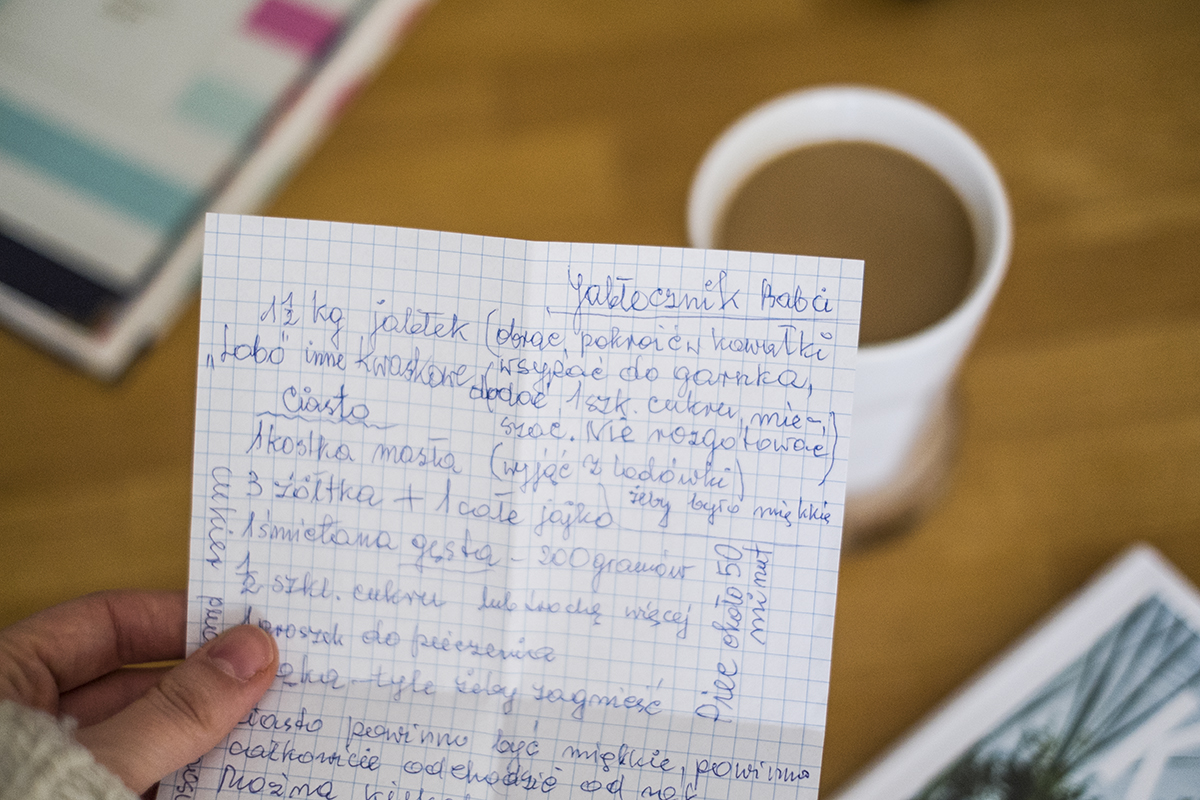 Jabłecznik Babci
1 1/2 kg jabłek (obrać, pokroić w kawałki
"Lobo" inne kwaskowe, wsypać do garnka,
dodać 1 szk. cukru, mie-
szać. Nie rozgotować)
Ciasto
1 kostka masła (wyjąć z lodówki)
żeby było miękkie
3 żółtka + 1 całe jajko
1 śmietana gęsta - 200 gramów
1/2 szkl. cukru lub trochę więcej
1 proszek do pieczenia
tyle żeby zagnieść
Ciasto powinno być miękkie, powinno
całkowicie odchodzić od
Można
Piec około 50
minut
cukier